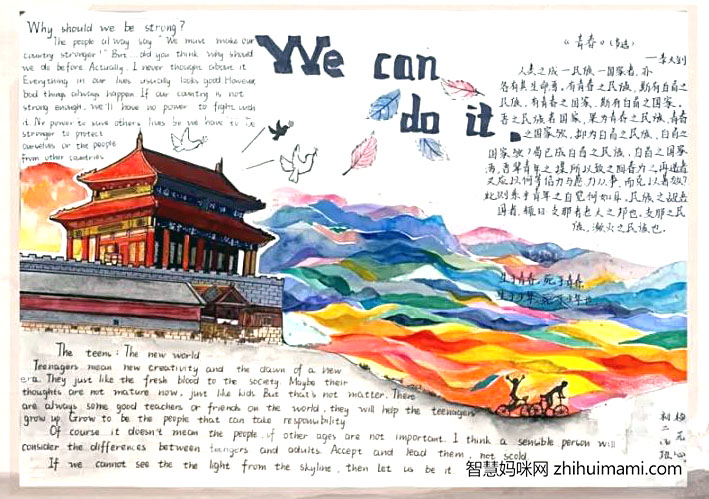 Why should we be strong?
The people alway say "We must make our
country stronger!" But did you think why should
we do before. Actually, I never thought about it.
Everything in our lives usually looks good However,
bad things always happen. If our cantry is not
strong enough, we'll have no power to fight with
it. No power to save others lives So we have to be
stronger to protect
ourselves or the people
from other countries
We can
do it.
《青春》(节选)
—李大钊
人类之成一民族一国家者,亦
各有其生命焉,有青春之民族,斯有白首之
民族,有青春之国家,斯有白首之国家。
吾之民族若国家,果为青春之民族、青春
之国家欤,抑为白首之民族、白首之
国家欤?苟已成白首之民族、白首之国家
焉,吾辈青年之谋所以致之回春为之再造者
又应以何等信力与愿力从事,而克以著效?
此则系乎青年之自觉何如耳,民族之
国者,
族,濒灭之民族也。
生于青春,死于青春
生于少年,死于少年也
The teens: The new world
Teenagers mean new creativity and the dawn of a new
era. They just like the fresh blood to the society. Maybe their
thoughts are not mature now, just like kids But that's not matter. There
are always some good teachers or friends on the world, they will help the teenagers
grow up. Grow to be the people that can take responsibility
Of course it doesn't mean the people of other ages are not important. I think a sensible person will
consider the differences between teengers and adults. Accept and lead them, not scold.
If we cannot see the the light from the skyline, then let us be it
智慧妈咪网 zhihuimami.com